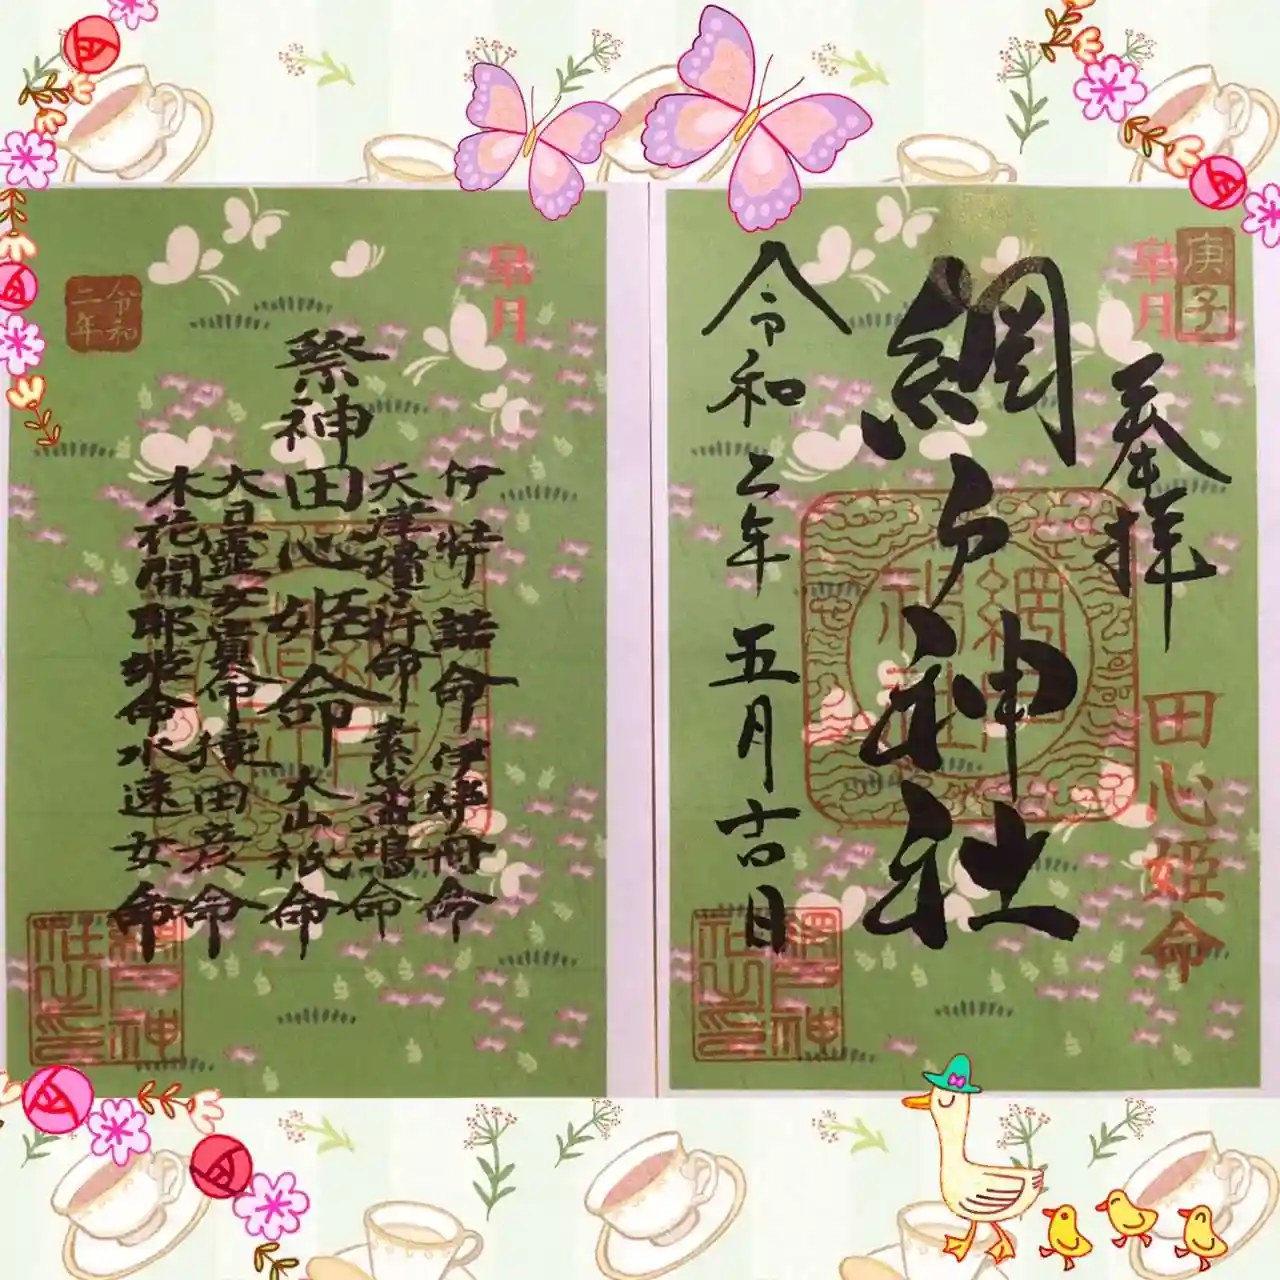 庚子
皐月
奉拝
田心姫命
網戸神社
網戸神社
令和二年五月吉日
網戸神社之印
皐月
祭神
伊弉諾命 伊弉冊命
天津瓊々杵命 素盞鳴命
田心姫命 大山祇命
大日靈女貴命 猿田彦命
木花開耶姫命 水速女命
令和二年
網戸神社之印